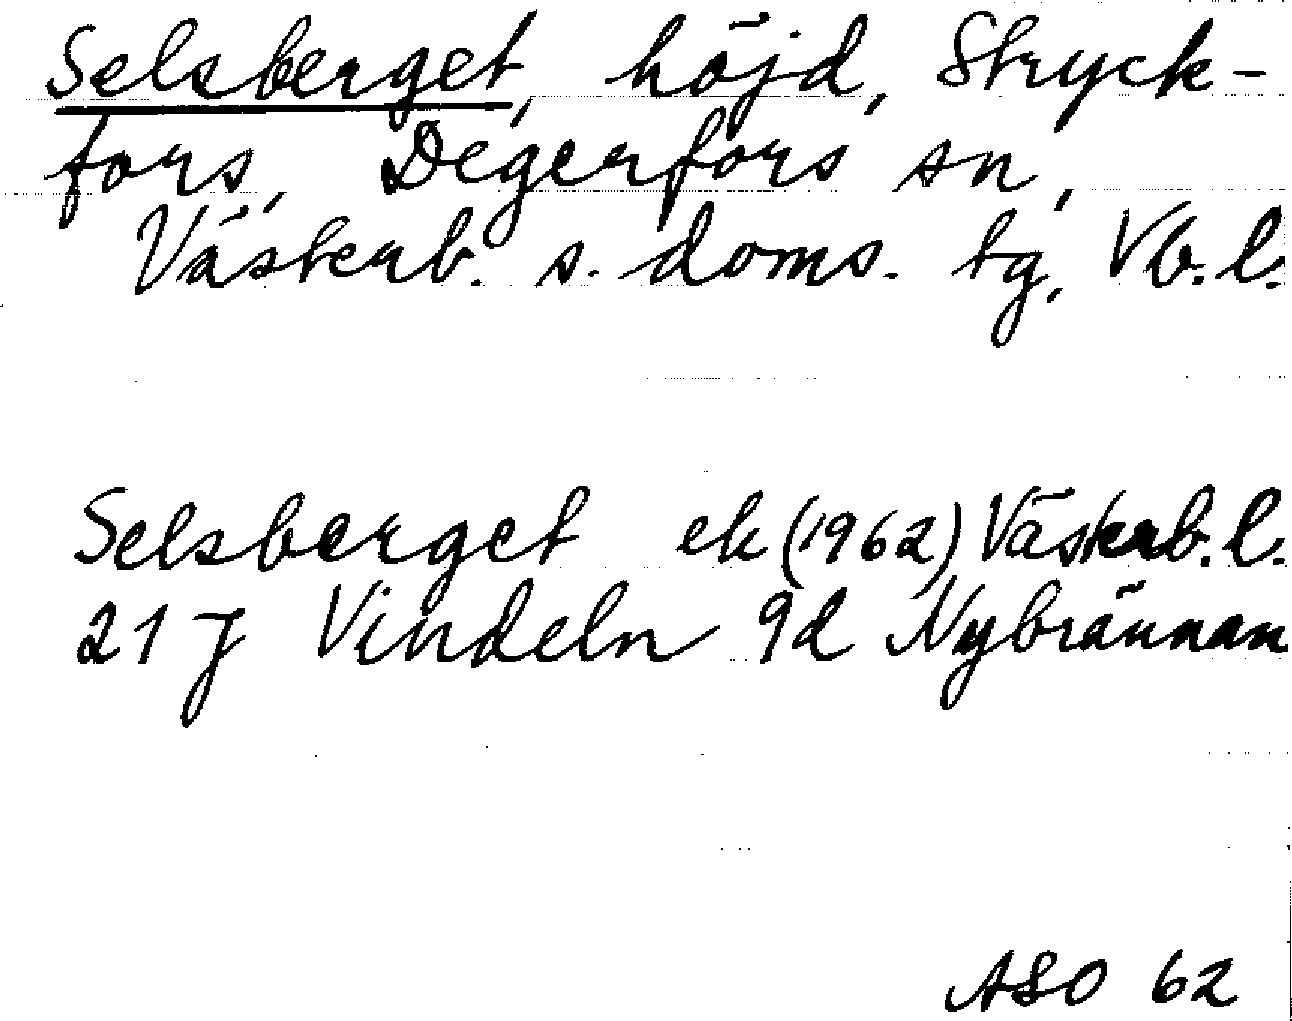 Selsberget, höjd, Stryck-
fors, Degerfors sn,
Västerb. s. doms. tg, Vb. l.
Selsberget ek (1962) Västerb. l.
21 J Vindeln 9d Nybrännan
ASO 62